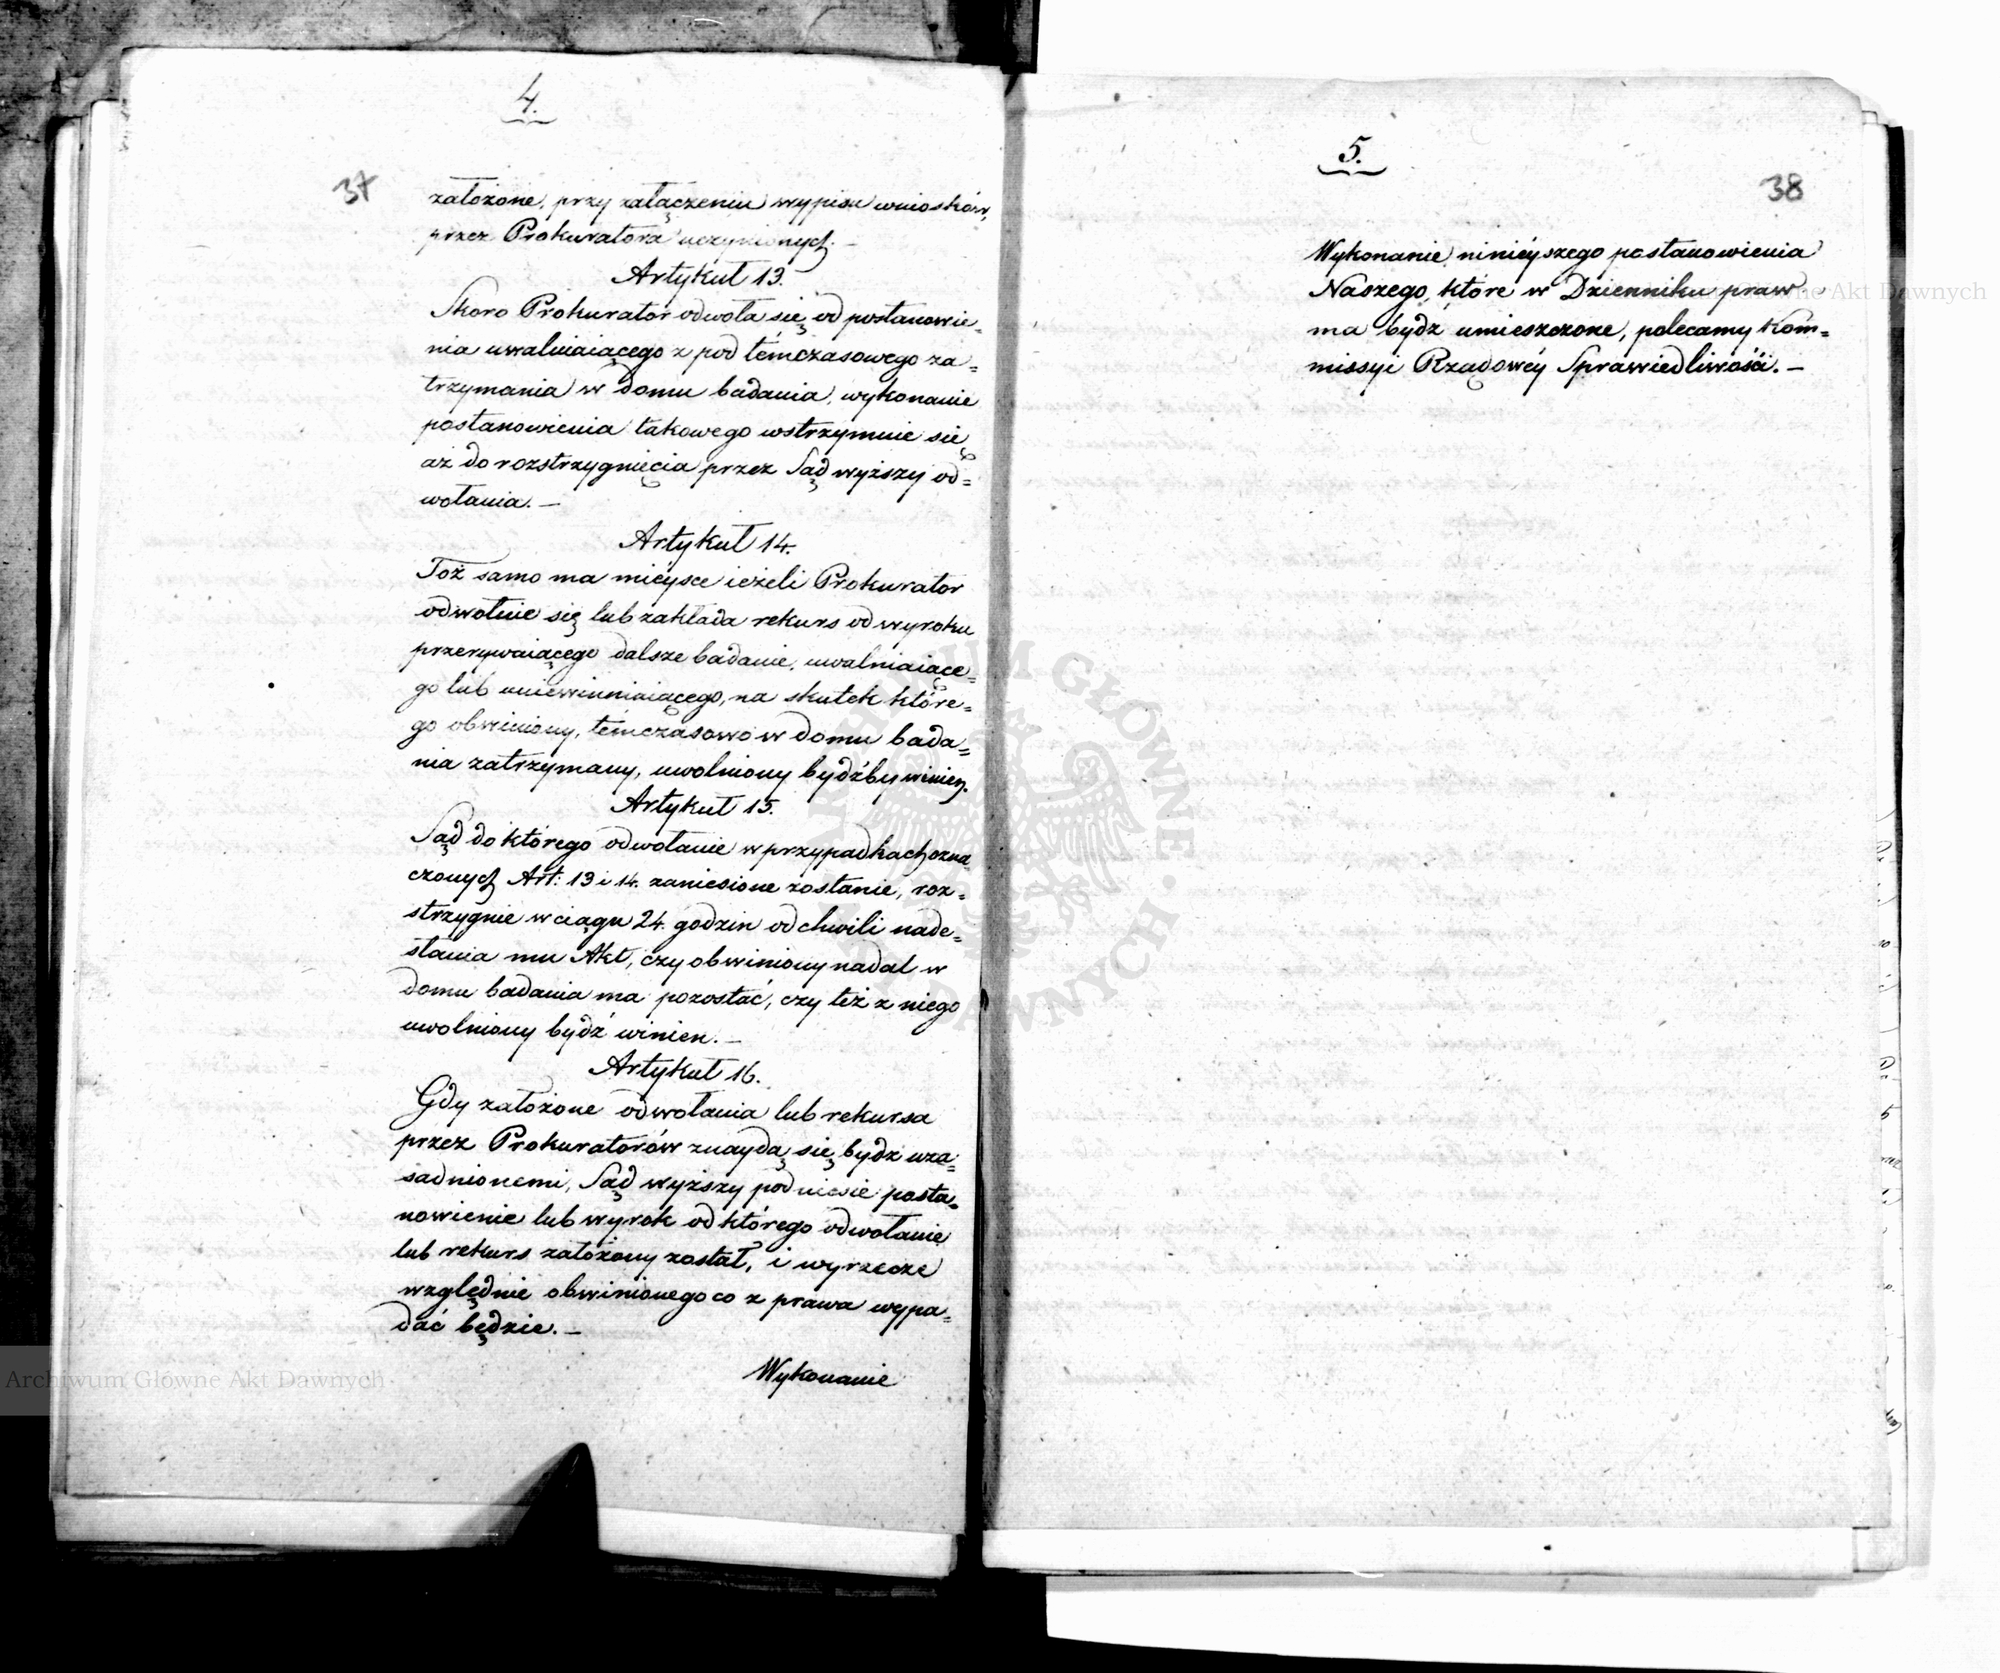 4.
37
założone, przy załączeniu wypisu wniosków,
przez Prokuratora uczynionych. —
Artykuł 13.
Skoro Prokurator odwoła się od postanowie=
nia uwalniaiącego z pod témczasowego za=
trzymania w domu badania, wykonanie
postanowienia takowego wstrzymuie się
aż do rozstrzygnięcia przez Sąd wyższy od=
wołania. —
Artykuł 14.
Toż samo ma mieysce ieżeli Prokurator
odwołuie się lub zakłada rekurs od wyroku
przerywaiącego dalsze badanie, uwalniaiące=
go lub uniewinniaiącego, na skutek które=
go obwiniony, témczasowo w domu bada=
nia zatrzymany, uwolniony bydźby winien.
Artykuł 15.
Sąd do którego odwołanie w przypadkach ozna
czonych Art: 13 i 14. zaniesione zostanie, roz=
strzygnie w ciągu 24. godzin od chwili nade=
słania mu Akt, czy obwiniony nadal w
domu badania ma pozostać, czy też z niego
uwolniony bydź winien. —
Artykuł 16.
Gdy założone odwołania lub rekursa
przez Prokuratorów znaydą się bydź uza=
sadnionemi, Sąd wyższy podniesie posta=
nowienie lub wyrok od którego odwołanie
lub rekurs założony został, i wyrzecze
względnie obwinionego co z prawa wypa=
dać będzie. —
Wykonanie
5.
38
Wykonanie ninieyszego postanowienia
Naszego, które w Dzienniku praw
ma bydź umieszczone, polecamy Kom=
missyi Rządowéy Sprawiedliwości. —
Archiwum Główne Akt Dawnych
ARCHIWUM GŁÓWNE AKT DAWNYCH